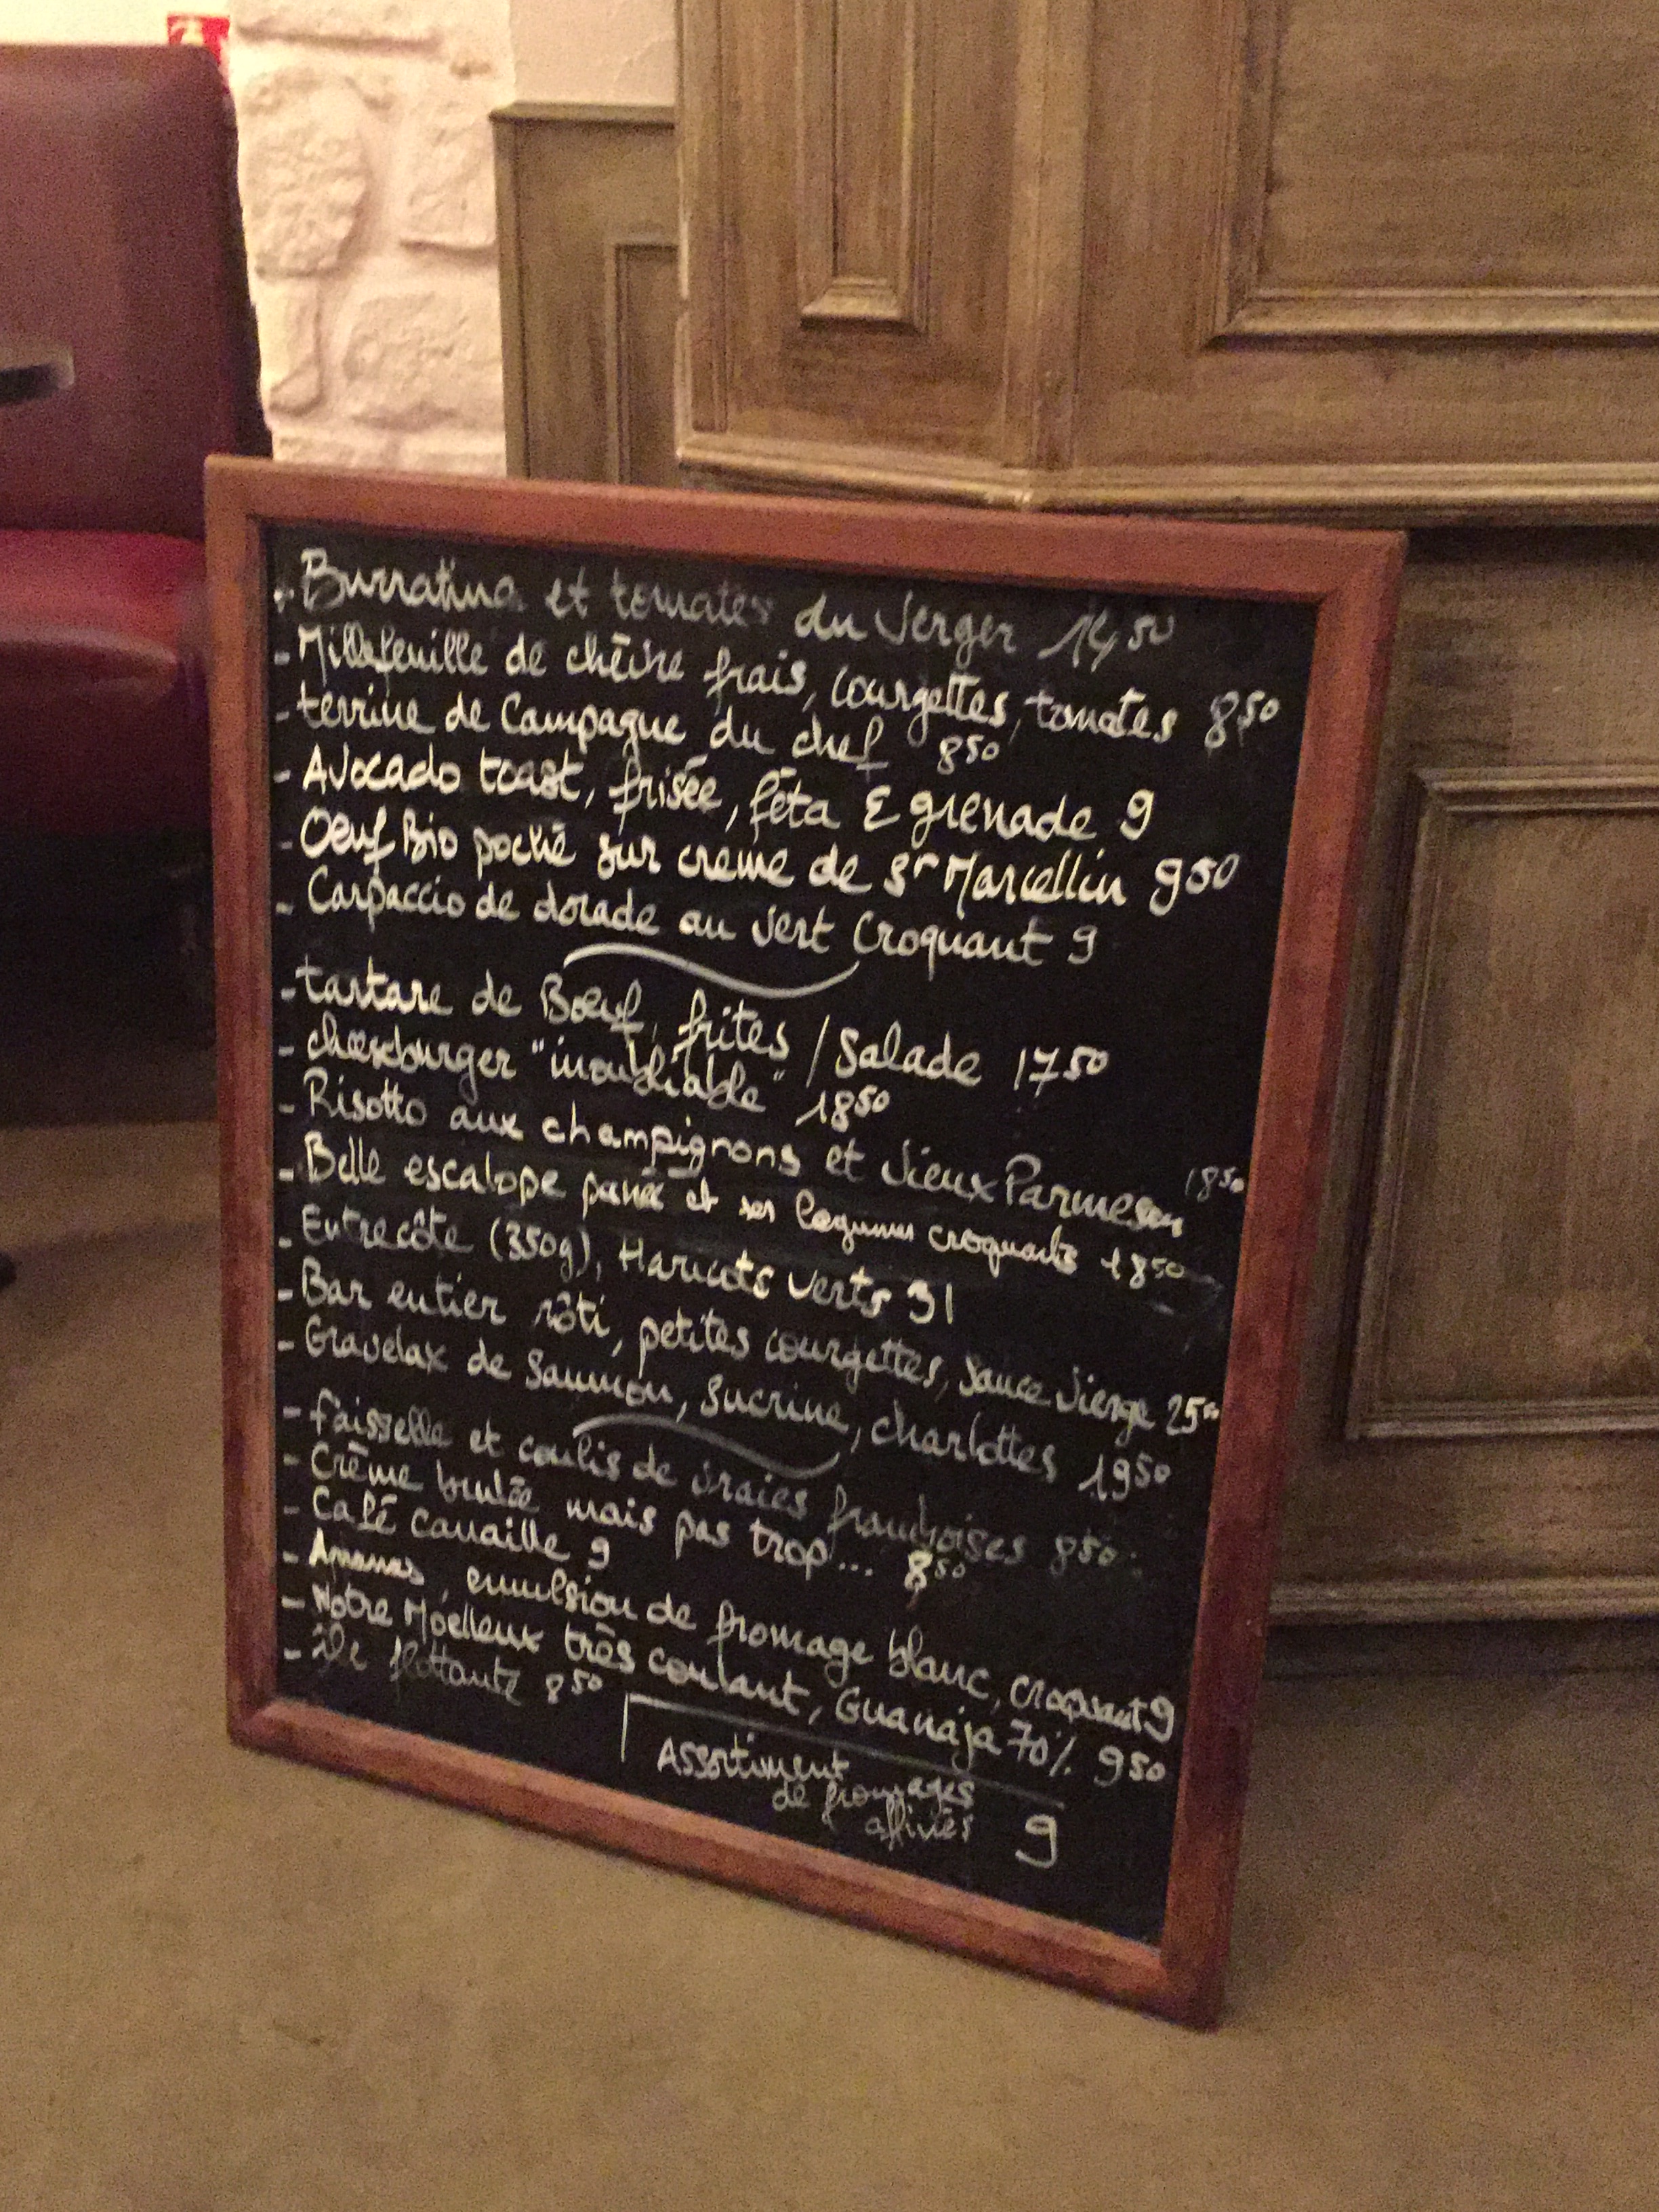 - Burratina et tomates du verger 14,50
- Millefeuille de chèvre frais, courgettes, tomates 8,50
- terrine de Campagne du chef 850
- Avocado toast, frisée, fêta & grenade 9
- Oeuf Bio poché sur crème de St Marcellin 950
- Carpaccio de dorade au vert Croquant 9
- tartare de Boeuf, frites / Salade 1750
- cheeseburger "inoubliable" 1850
- Risotto aux champignons et vieux Parmesan 1850
- Belle escalope panée et ses légumes croquants 1850
- Entrecôte (350g), Haricots verts 31
- Bar entier rôti, petites courgettes, sauce vierge 25
- Gravelax de Saumon, sucrine, charlottes 1950
- faisselle et coulis de vraies framboises 850
- Crème brulée mais pas trop... 850
- Café canaille 9
- Ananas, emulsion de fromage blanc, croquant 9
- Notre Moelleux très coulant, Guanaja 70% 950
- île flottante 850
Assortiment
de fromages
affinés 9